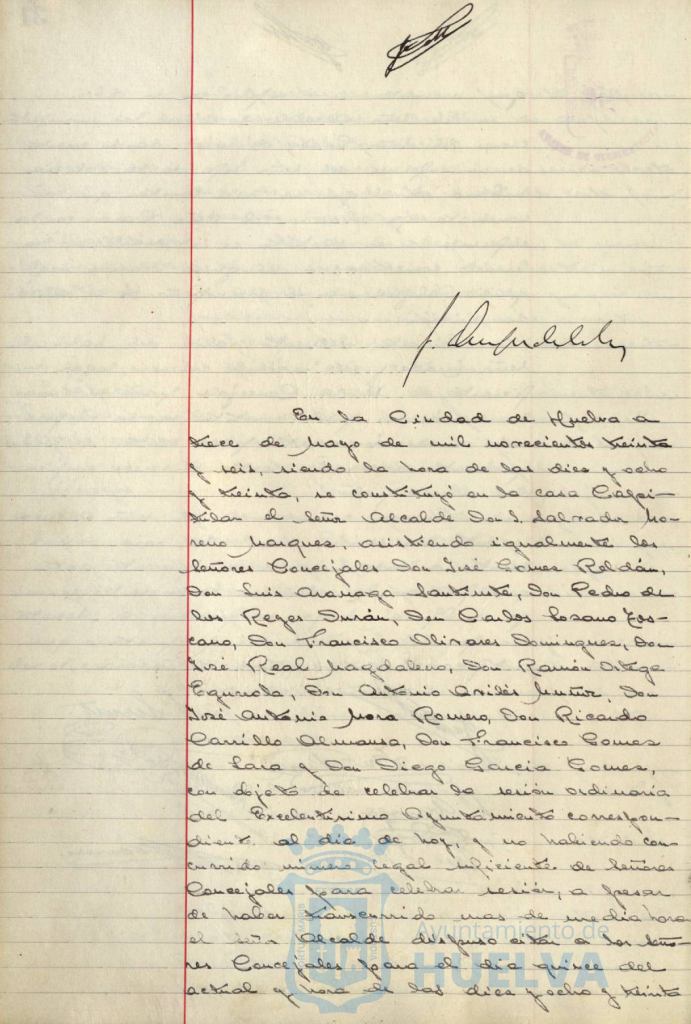 En la Ciudad de Huelva a
trece de Mayo de mil novecientos treinta
y seis, siendo la hora de las diez y ocho
y treinta, se constituyó en la casa Capi-
tular el Señor Alcalde Don J. Salvador Mo-
reno Marquez, asistiendo igualmente los
Señores Concejales Don José Gomez Roldán,
Don Luis Aranaga Santiuste, Don Pedro de
los Reyes Durán, Don Carlos Lozano Tos-
cano, Don Francisco Olivares Dominguez, Don
José Real Magdaleno, Don Ramón Ortega
Don Antonio Avilés Muñoz, Don
José Antonio Mora Romero, Don Ricardo
Carrillo Almansa, Don Francisco Gomez
de Lara y Don Diego Garcia Gomez,
con objeto de celebrar la sesión ordinaria
del Excelentisimo Ayuntamiento correspon-
diente al dia de hoy, y no habiendo con-
currido número legal suficiente de Señores
Concejales para celebrar sesión, a pesar
de haber transcurrido mas de media hora
el señor Alcalde dispuso citar a los seño-
res Concejales para el dia quince del
actual y hora de las diez y ocho y treinta
Ayuntamiento de
HUELVA